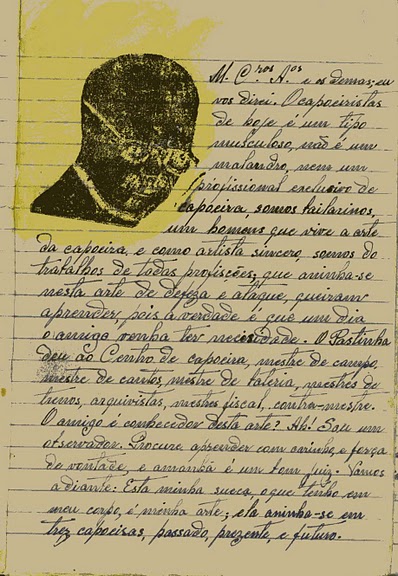 M. C.ros A.os e os demas; eu
vos direi. O capoeiristas
de hoje é um tipo
musculoso, não é um
malandro, nem um
profissional exclusivo de
capoeira, somos bailarinos,
um homens que vive a arte
da capoeira, e como artista sincero, somos do
trabalhos de todas profisções; que aninha-se
nesta arte de defeza é ataque, queiram
aprender, pois a verdade é que um dia
o amigo venha ter necesidade. O Pastinha
deu ao Centro de capoeira, mestre de campo,
mestre de cantos, mestre de bateria, mestres de
trenos, arquivistas, mestres fiscal, contra-mestre.
O amigo é conhecedor desta arte? Ah! Sou um
observador. Procure aprender com carinho, e força
de vontade, e amanhã é um bom juiz. Vamos
adiante: Esta minha sueca, o que tenho em
meu corpo, é menha arte; ela aninha-se em
trez capoeisas, passado, prezente, e futuro.